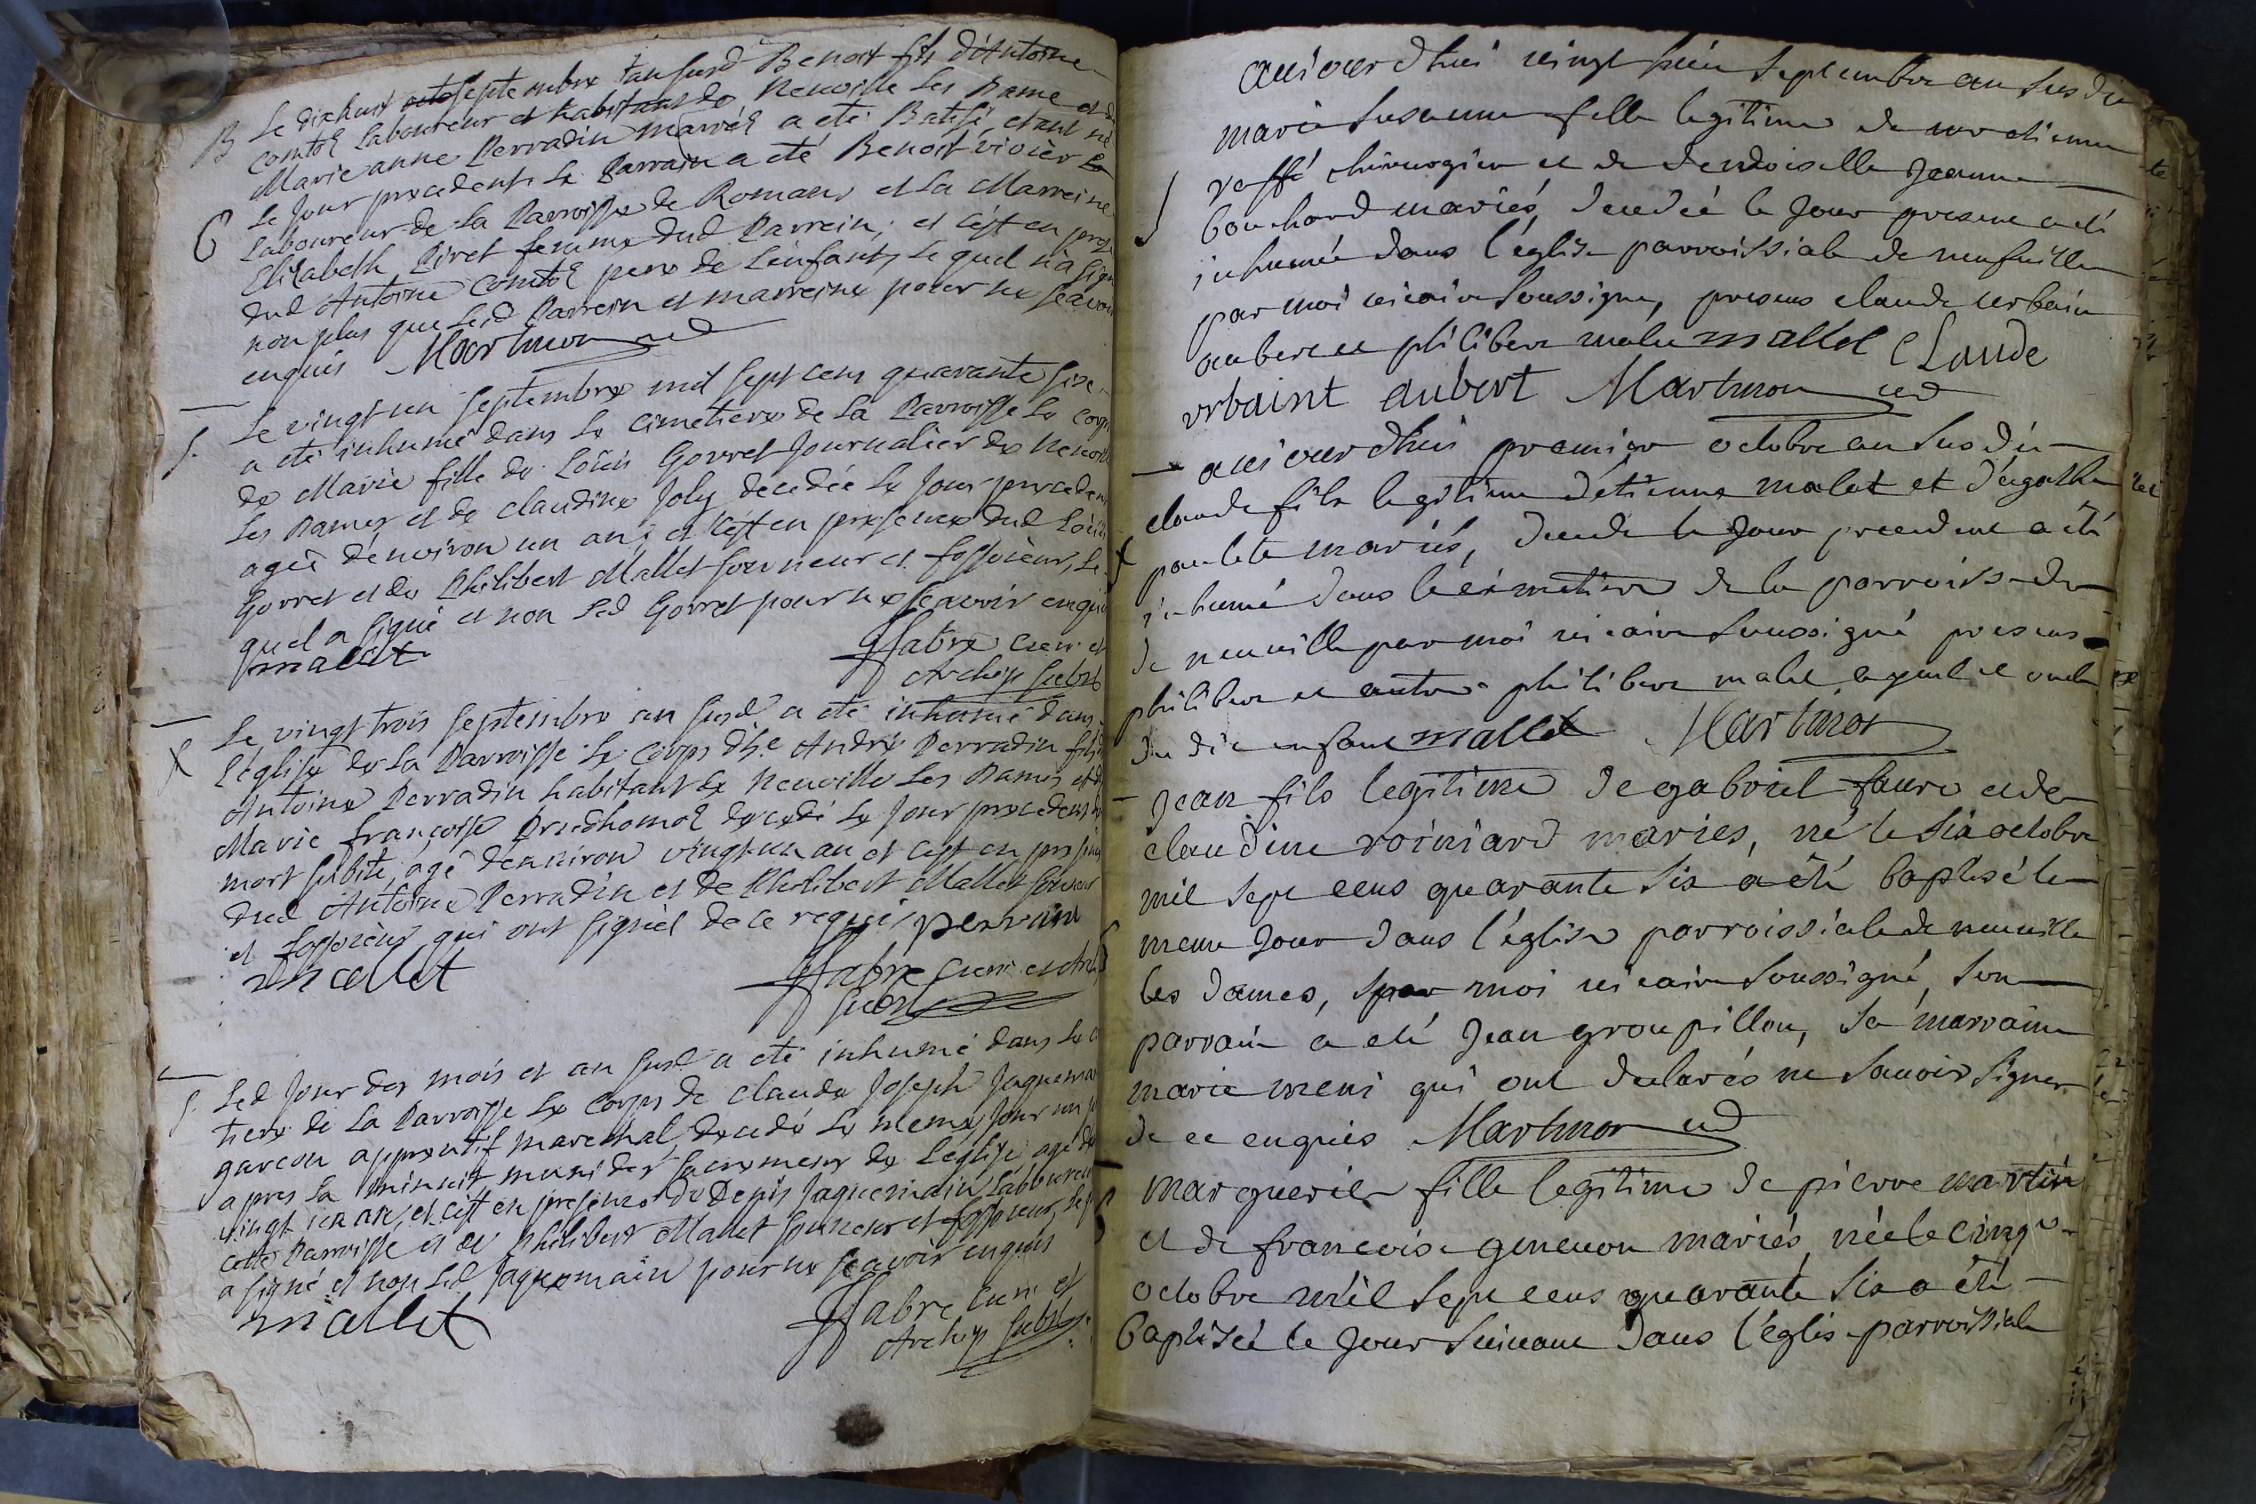 B Le dixhuit septembre l'an susd Benoit fils d'Antoine
Comtet Laboureur et habitant de Neuville Les Dame et de
Marie anne Perradin mariés a eté Batisé etant né
Le Jour precedent Le Parrain a eté Benoit vivier
Laboureur de La Parroisse de Romans et La Marreine
Elizabeth Piret femme dud Parrein; et c'est en pres
dud Antoine Comtet pere de L'enfant, Le quel n'a signé
non plus que Lesd Parrein et marreine pour ne sçavoir
enquis Martinon
Le vingt un septembre mil sept cens quarante six
a eté inhumé dans Le cimetiere de La Parroisse Le corps
de Marie fille de Loüis Gorret Journalier de Neuville
Les Dames et de claudine Joly decedée Le Jour precedent
agée d'environ un an; et c'est en presence dud Loüis
Gorret et de Philibert Mallet sonneur et fossoieur, Le
quel a signé et non Led Gorret pour ne sçavoir enquis
mallet fabre curé et
Archip
Le vingt trois septembre an susd a eté inhumé dans
L'église de La Parroisse Le corps d'h.e André Perradin fils
Antoine Perradin habitant de Neuville Les Dames et de
Marie françoise Prudhomot decedé Le Jour precedent
mort subite, agé d'environ vingt un an et c'est en pres
dud Antoine Perradin et de Philibert Mallet sonneur
et fossoieur qui ont signés de ce requis perradin
mallet fabre curé et
Led Jour des mois et an susd a eté inhumé dans Le ci
tiere de La Parroisse Le Corps de Claude Joseph Jaquemain
garcon apprentif marechal, decedé Le meme Jour un
apres La minuit muni des sacremens de L'eglise agé de
vingt un an, et c'est en presence de Denis Jaquemain Labboureur
cette Parroisse et de Philibert Mallet sonneur et fossoieur, Leq
a signé et non Led Jaquemain pour ne sçavoir enquis
mallet fabre curé et
Archip
aujourdhui vingt huit septembre an sus dit
marie susanne fille legitime de mr etienne
chirurgien et de demoiselle jeanne
bouchard mariés, decedée le jour present a eté
inhumée dans l'église parroissiale de neufville
par moi vicaire soussigné, presens claude urbain
aubert et philibert malet mallet Claude
vrbaint aubert Martinon
aujourdhui premier octobre an sus dit
claude fils legitime d'étienne malet et d'agathe
poulete mariés, decedé le jour precedent a été
inhumé dans le cimetiere de la parroisse de
de neuville par moi vicaire soussigné presens
philibert et autre philibert malet, ayeul et oncle
du dit enfant mallet Martinon
Jean fils legitime de gabriel faure et de
claudine roiniard maries, né le six octobre
mil sept cens quarante six a été baptisé le
meme jour dans l'église parroissiale de neuville
les dames, par moi vicaire soussigné, son
parrain a eté jean groupillon, sa marraine
marie meni qui ont declarés ne savoir signer
de ce enquis Martinon
marguerite fille legitime de pierre martin
et de francoise genevon mariés, née le cinq
octobre mil sept cens quarante six a été
baptisée le jour suivant dans l'église parroissiale